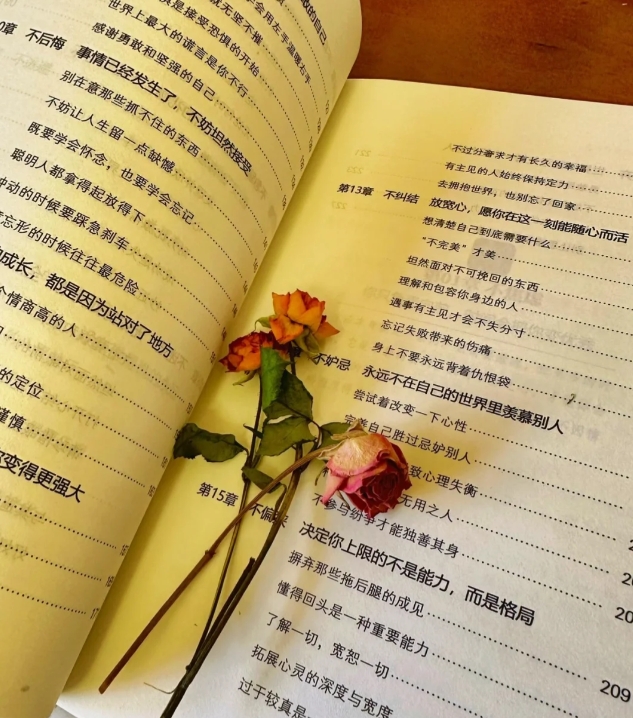 世界上最大的谎言是你不行
感谢勇敢和坚强的自己
不后悔 事情已经发生了，不妨坦然接受
别在意那些抓不住的东西
不妨让人生留一点缺憾
既要学会怀念，也要学会忘记
聪明人都拿得起放得下
冲动的时候要踩急刹车
忘形的时候往往最危险
成长，都是因为站对了地方
个情商高的人
的定位
谨慎
变得更强大
不过分奢求才有长久的幸福
有主见的人始终保持定力
去拥抱世界，也别忘了回家
第13章 不纠结 放宽心，愿你在这一刻能随心而活
想清楚自己到底需要什么
“不完美”才美
坦然面对不可挽回的东西
理解和包容你身边的人
遇事有主见才会不失分寸
忘记失败带来的伤痛
身上不要永远背着仇恨袋
不妒忌 永远不在自己的世界里羡慕别人
尝试着改变一下心性
完善自己胜过忌妒别人
致心理失衡
无用之人
不参与纷争才能独善其身
第15章 不偏 决定你上限的不是能力，而是格局
摒弃那些拖后腿的成见
懂得回头是一种重要能力 209
了解一切，宽恕一切
拓展心灵的深度与宽度
过于较真是